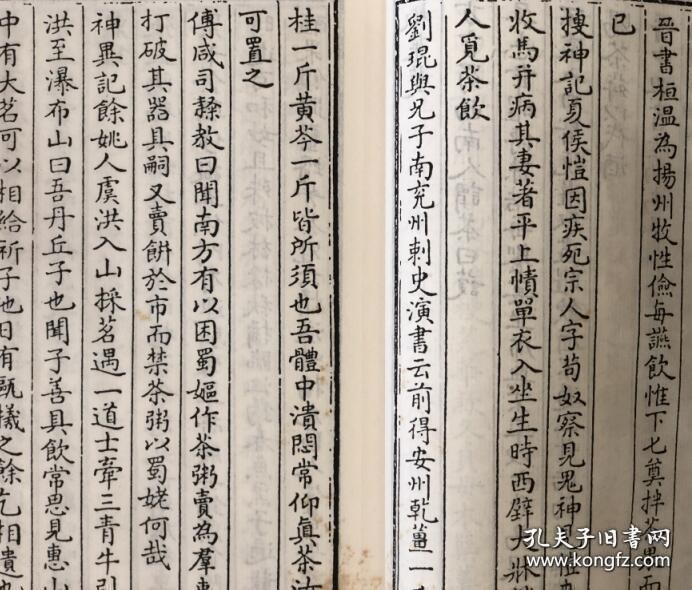 晉書桓温為揚州牧性儉每讌飲惟下七奠拌茶果而
已
搜神記夏侯愷因疾死宗人字苟奴察見鬼神見愷
收馬并病其妻著平上幘單衣入坐生時西壁大牀
人覓茶飲
劉琨與兄子南兗州刺史演書云前得安州乾薑一
桂一斤黃芩一斤皆所須也吾體中潰悶常仰眞茶汝
可置之
傅咸司隸教曰聞南方有以困蜀嫗作茶粥賣為羣
打破其器具嗣又賣餅於市而禁茶粥以蜀姥何哉
神異記餘姚人虞洪入山採茗遇一道士牽三青牛引
洪至瀑布山曰吾丹丘子也聞子善具飲常思見惠山
中有大茗可以相給祈子他日有甌犧之餘乞相遺也
孔夫子旧书网
www.kongfz.com